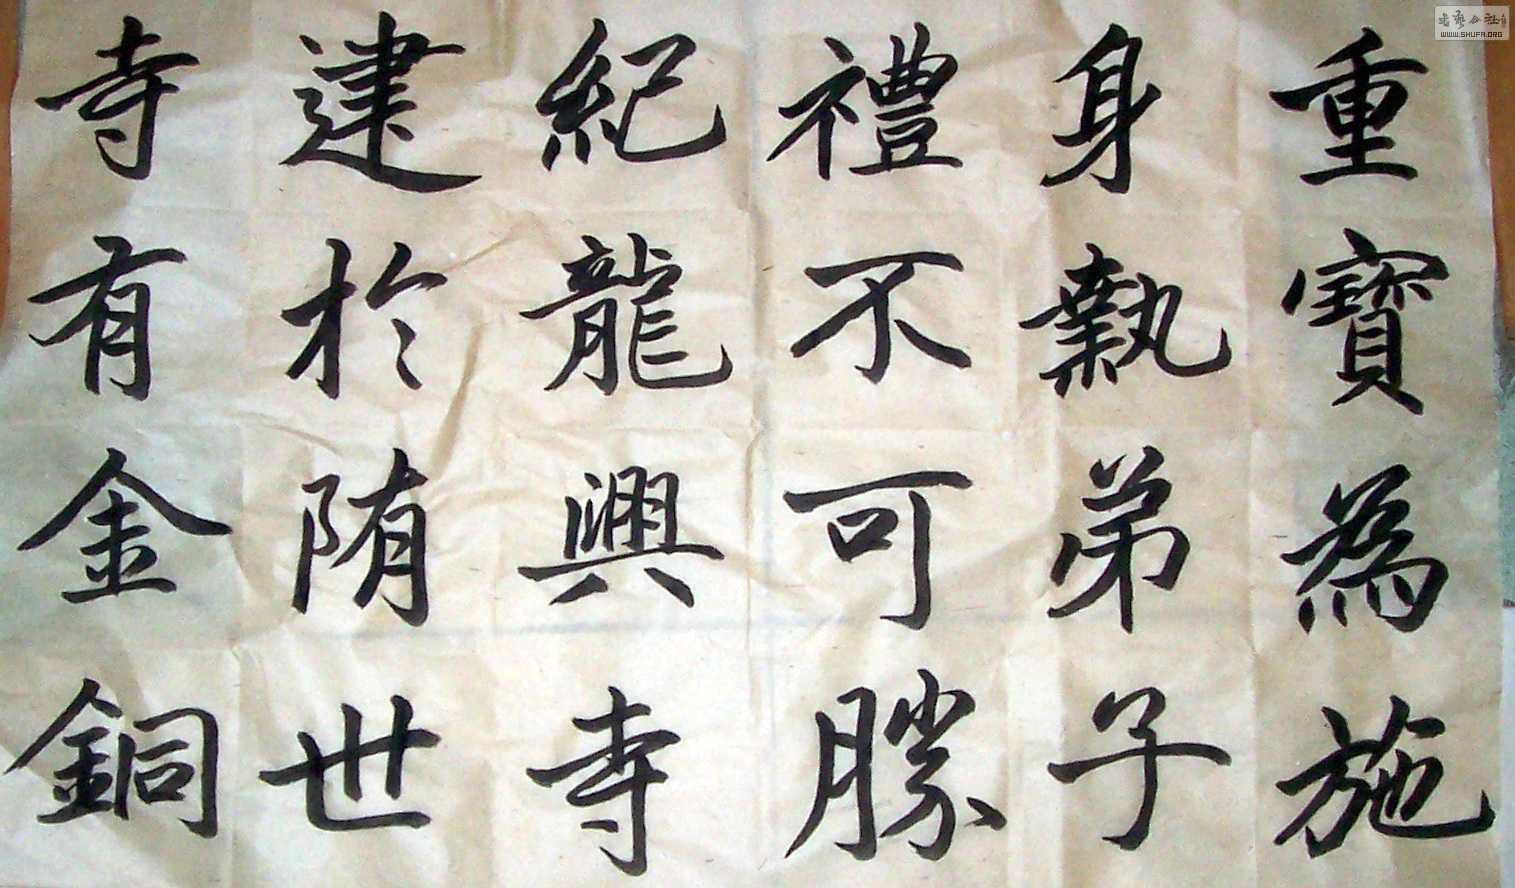 重寶為施
身執弟子
禮不可勝
紀龍興寺
建於隋世
寺有金銅
書藝公社
WWW.SHUFA.ORG